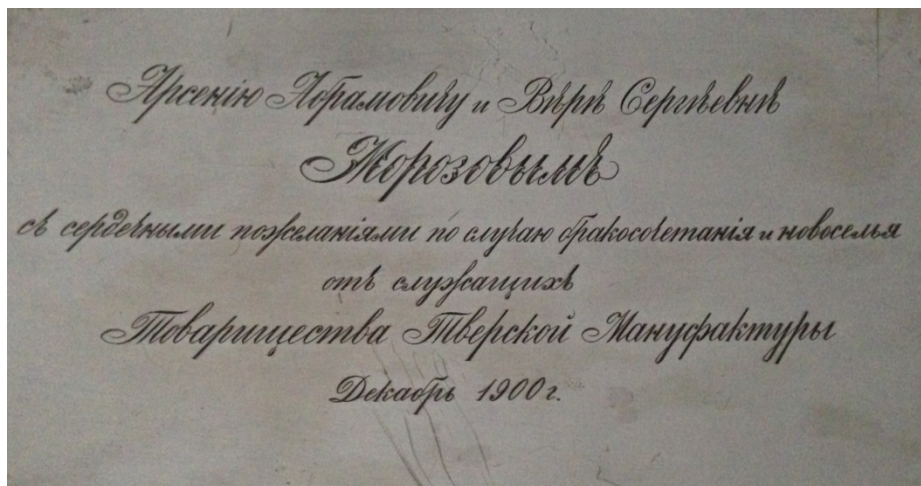 Арсенію Абрамовичу и Вѣрѣ Сергѣевнѣ
Морозовымъ
съ сердечными пожеланіями по случаю бракосочетанія и новоселья
отъ служащихъ
Товарищества Тверской Мануфактуры
Декабрь 1900 г.